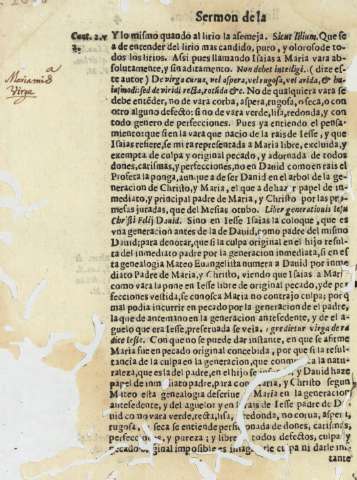 Sermon de la
Cant. 2. v
2.
Maria mis
Virga
a
Y lo mismo quando al lirio la asemeja. Sicut lilium. Que se
a de entender del lirio mas candido, puro, y oloroso de to-
dos los lirios. Assi pues llamando Isaias a Maria vara ab-
solutamente, y sin aditamento. Non debet intelligi. (dize es-
te autor) De virga curua, vel aspera, vel rugosa, vel arida, &
sed de viridi recta, &. No de qualquiera vara se
debe entẽder, no de vara corba, aspera, rugosa, o seca, o con
otro alguno defecto: si no de vara verde, lisa, redonda, y con
todo genero de perfecciones. Pues ya entiendo el pensa-
miento: que si en la vara que nacio de la rais de Iesse, y que
Isaias refiere, se mira representada a Maria libre, excluida, y
exempta de culpa y original pecado, y adornada de todos
dones, carismas, y perfecciones, no en Dauid como en rais el
Profeta la ponga, aunque a de ser Dauid en el arbol de la ge-
neracion de Christo, y Maria, el que a de hazer papel de in-
mediato, y principal padre de Maria, y Christo por las pro-
mesas juradas, que del Mesias otubo. Liber generationis Iesu
Christi Filij Dauid. Sino en Iesse Isaias la coloque, que es
vna generacion antes de la de Dauid, como padre del mismo
Dauid; para denotar, que si la culpa original en el hijo resulta
del inmediato padre por la generacion inmediata, si en es
ta genealogia Mateo Euangelista numera a Dauid por inme
diato Padre de Maria, y Christo, viendo que Isaias a Mar
como vara la pone en Iesse libre de original pecado, y de pe
fecciones vestida, se conosca Maria no contrajo culpa; por q
mal podia incurrir en pecado por la generacion de el padre,
la que de antemano en la generacion antesedente, y de el a-
guelo que era Iesse, preseruada se veja. Egredietur virga de ra
dice Iesse. Con que no se puede dar instante, en que se afirme
Maria fue en pecado original concebida, por que si la resul-
tancia de la culpa en la generacion, que comunica la natu-
raleza, que es la del padre, en el hijo se y Dauid haze
papel de inmediato padre, para con Maria, y Christo segun
Mateo esta genealogia describe Maria en la generacion
antesedente, y del aguelo y en la rais de Iesse antes de Da-
uid como vara verde, recta, lisa, redonda, no corua, aspera,
rugosa, seca se entiende personada de dones, carismas,
perfecciones, y pureza; y libre todos defectos, culpa y
pecado original imposible es imaginarle culpa ni darle ins-
tante